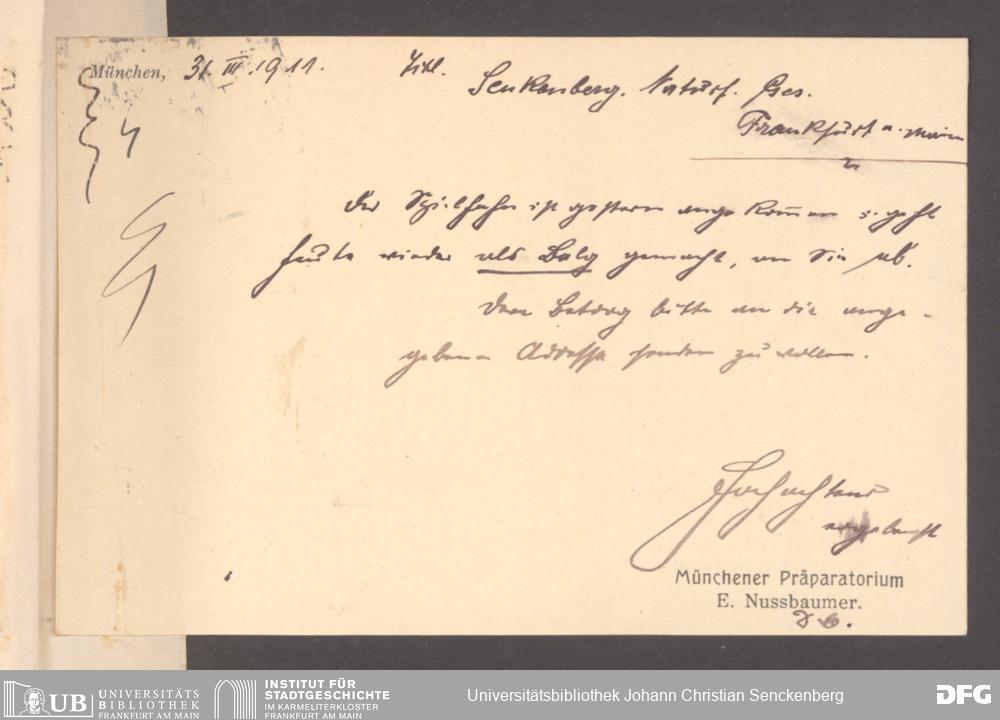 München, 31. III. 1911.
Titl. Senkenberg. Naturf. Ges.
Frankfurt a. Main
Der Spielhahn ist gestern angekommen u. geht
heute wieder als Balg gemacht, an Sie ab.
Den Betrag bitte an die ange-
gebene Adresse senden zu wollen.
Hochachtend
ergebenst
Münchener Präparatorium
E. Nussbaumer.
UB UNIVERSITÄTS
BIBLIOTHEK
FRANKFURT AM MAIN
INSTITUT FÜR
STADTGESCHICHTE
IM KARMELITERKLOSTER
FRANKFURT AM MAIN
Universitätsbibliothek Johann Christian Senckenberg
DFG